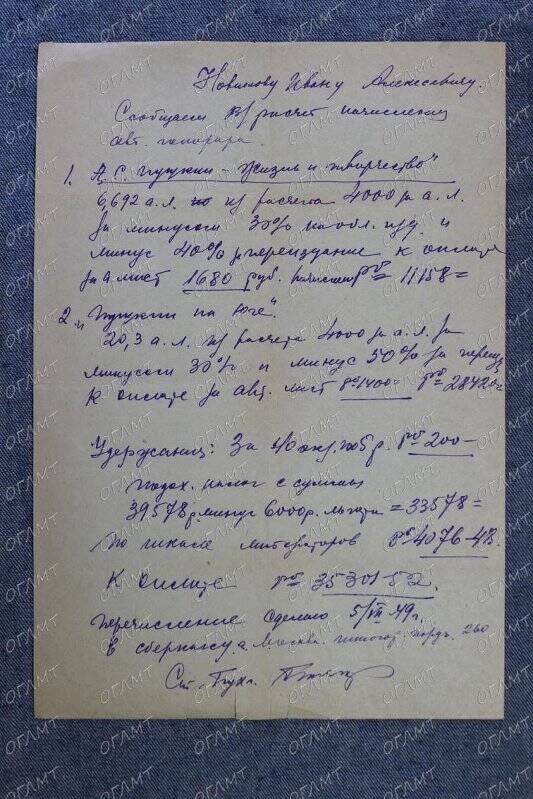 Новикову Ивану Алексеевичу.
Сообщаем расчет начисления
авт. гонорара.
1. А.С. Пушкин – Жизнь и творчество"
6,692 а.л. из расчета 4000 за а.л.
за минусом 30% изд. и
минус 40% за переиздание к оплате
за а.лист 1680 руб. = 11158=
2. „Пушкин на Юге".
20,3 а.л. из расчета 4000 за а.л. за
минусом 30% и минус 50% за переизд
к оплате за авт. лист 1400= 28420=
Удержания: За 200—
подох. налог с суммы
39578 р. минус 6000р. льгота = 33578=
По шкале литераторов 4076-48
К оплате 35301-52
перечисление сделано 5/III 49г.
в сберкассу Москва 260
Ст. Бухг.
ОГЛМТ